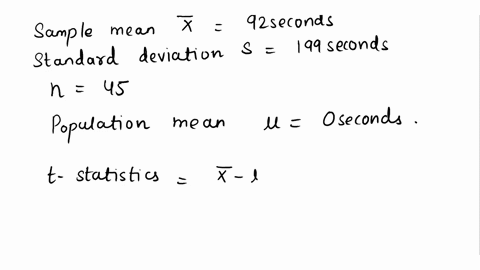 Sample mean x̄ = 92seconds
Standard deviation S = 199 seconds
n = 45
Population mean μ = 0seconds.
t- statistics = x̄ -